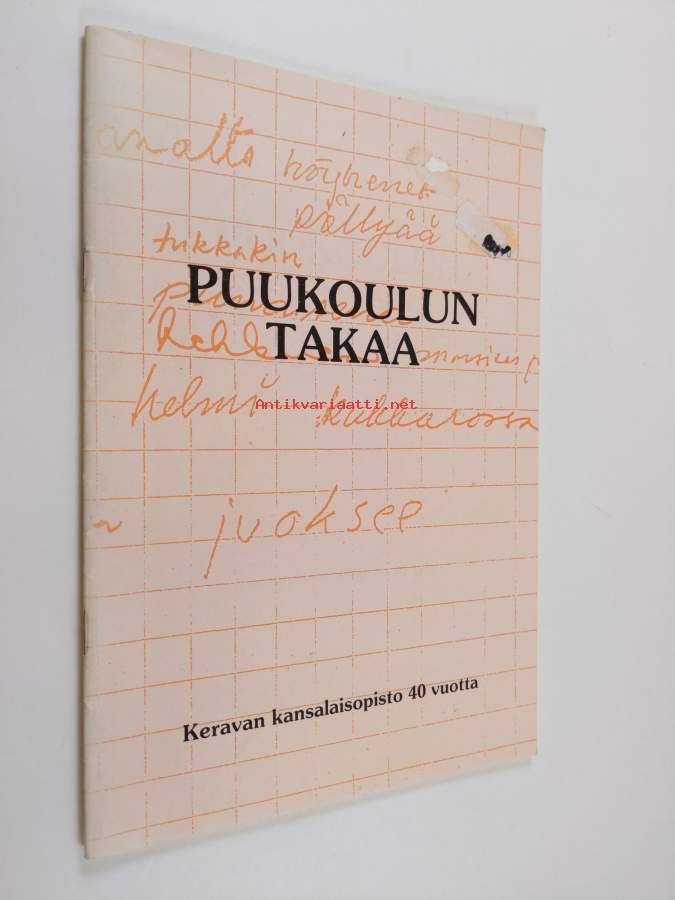 höyhenet
pöllyää
tukkakin
PUUKOULUN
TAKAA
helmi kukkarossa
Antikvariaatti.net
juoksee
Keravan kansalaisopisto 40 vuotta